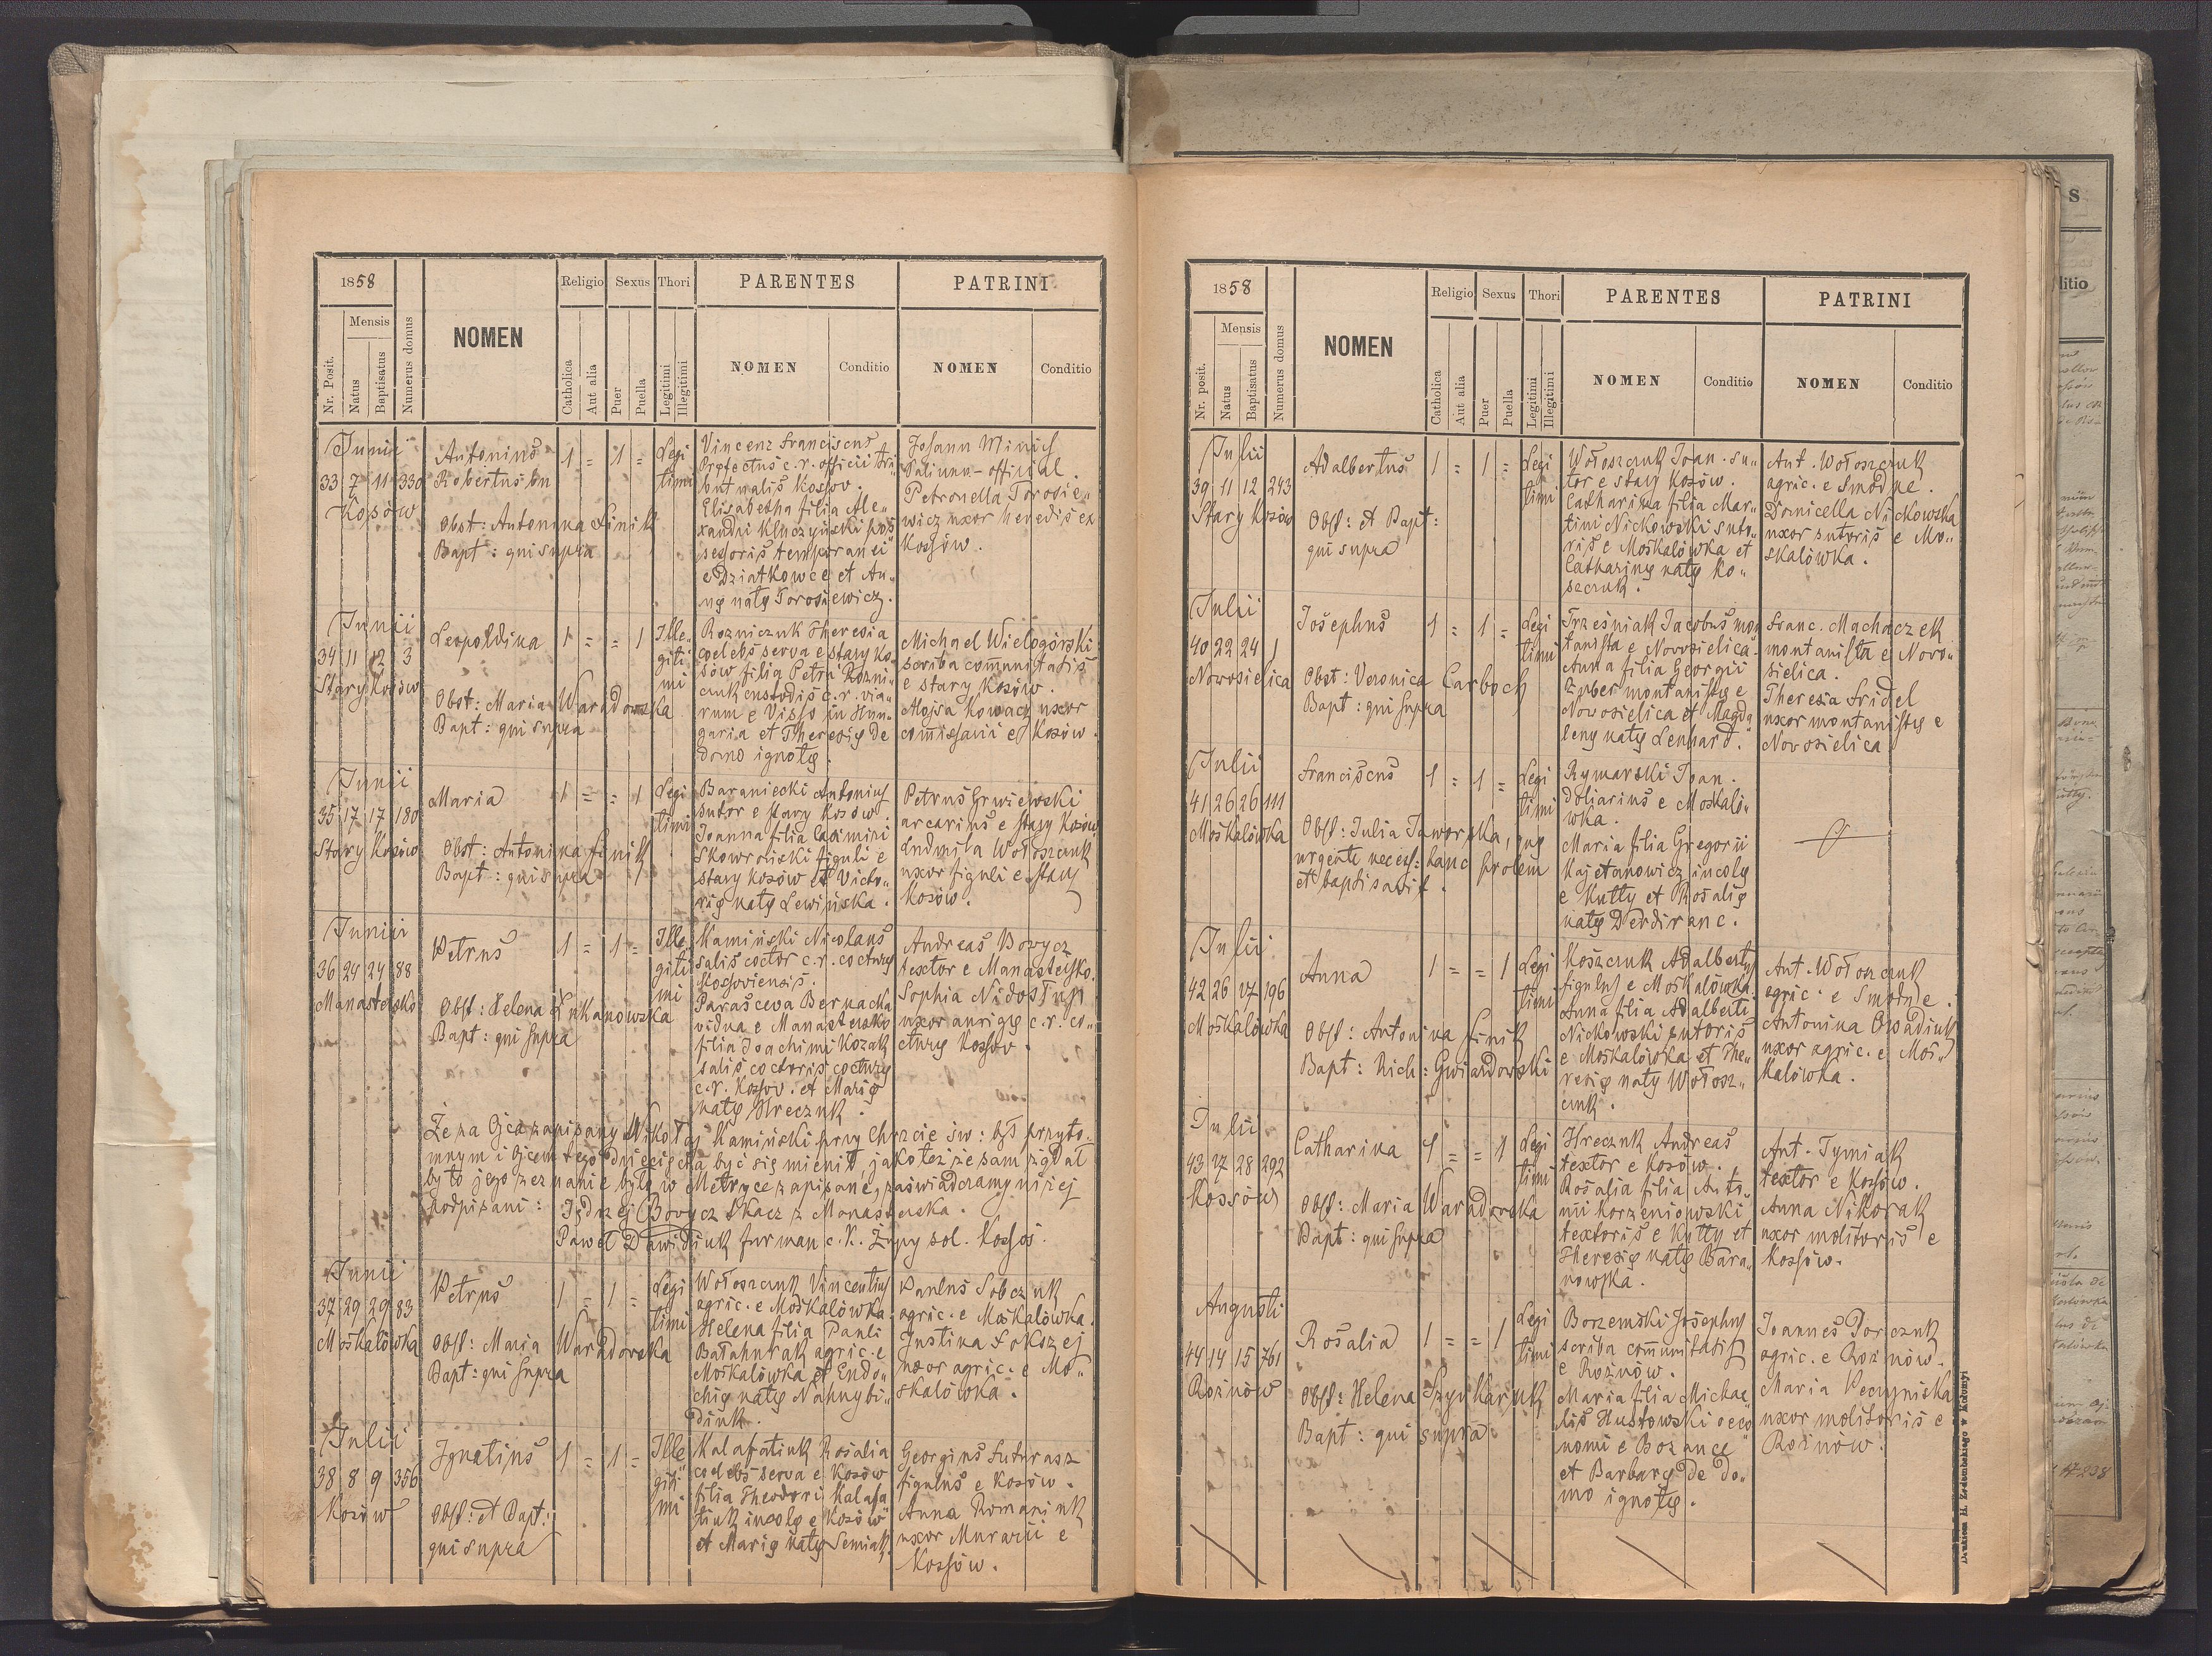 1858
Mensis
Nr. Posit.
Natus
Baptisatus
Numerus domus
NOMEN
Religio
Catholica
Aut alia
Sexus
Puer
Puella
Thori
Legitimi
Illegitimi
PARENTES
NOMEN
Conditio
PATRINI
NOMEN
Conditio
Junii
33 7 11 330
Kosów
Antoninus
Robertus bn
Obst: Antonina Finik
Bapt: qui supra
1 = 1 =
Legi
timi
Vincenz Franciscus
Protectus c.r. officii tri„
butualis Kossov.
Elisabetha filia Ale„
xandri Kluczyński pos„
sessoris temporanei
e Dziatkowce et An„
nę natę Torosiewicz.
Johann Minich
Palinnn-official.
Petronella Torosie„
wicz uxor heredis ex
Kossów.
Junii
34 11 12 3
Stary Kosów
Leopoldina
Obst: Maria Waradowska
Bapt: qui supra
1 = = 1
Ille„
giti„
mi
Rozniczuk Theresia
coelebs serva e stary Ko„
sów filia Petri Rozni„
czuk custodis c.r. via„
rum e Visso in Hun„
garia et Theresię de
domo ignotę.
Michael Wielogórski
scriba communitatis
e stary Kosów.
Alojsa Kowacz uxor
commissarii e Kosów.
Junii
35 17 17 180
Stary Kosów
Maria
Obst: Antonina Finik
Bapt: qui supra
1 = = 1
Legi
timi
Baraniecki Antonius
sutor e stary Kosów.
Joanna filia Casimiri
Skowroński figuli e
stary Kosów et Victo„
rię natę Lewińska.
Petrus Grwiewski
arcarius e stary Kosów
Ludmila Wołoszczuk
uxor figuli e stary
Kosów.
Junii
36 24 24 88
Manastersko
Petrus
Obst: Helena Łukanowska
Bapt: qui supra
1 = 1 =
Ille„
giti„
mi
Kamiński Nicolaus
salis coctor c.r. cocturę
Kossoviensis.
Parasceva Bernacka
vidua e Manastersko
filia Joachimi Kozak
salis coctoris cocturę
c.r. Kossov. et Marię
natę Hreczuk.
Andreas Bovycz
textor e Manastersko.
Sophia Nidostup
uxor aurigę c.r. co„
cturę Kossov.
Że za Ojca zapisany Mikołaj Kamiński przy Chrzcie św: był przyto„
mnym i Ojcem tego dziecięcia być się mienił, jako też że sam żądał
by to jego zeznanie było w Metryce zapisane, zaświadczamy niżej
podpisani: Jędrzej Bovycz tkacz z Manasterska.
Paweł Dawidiuk furman c.k. Żupy sol. Kossos.
Junii
37 29 29 83
Moskalówka
Petrus
Obst: Maria Waradovska
Bapt: qui supra
1 = 1 =
Legi
timi
Wołoszczuk Vincentius
agric. e Moskalówka.
Helena filia Pauli
Bałahurak agric. e
Moskalówka et Eudo„
chię natę Nahnybi„
diuk.
Paulus Sobczuk
agric. e Moskalówka.
Justina Fokszej
uxor agric. e Mo„
skalówka.
Julii
38 8 9 356
Kosów
Ignatius
Obst: et Bapt:
qui supra
1 = 1 =
Ille„
giti„
mi
Kalafatiuk Rosalia
coelebs serva e Kosów
filia Theodori Kalafa„
tiuk incolę e Kosów
et Marię natę Semiak.
Georgius Futurasz
figulus e Kosów.
Anna Romaniuk
uxor Murarii e
Kossów.
1858
Mensis
Nr. posit.
Natus
Baptisatus
Numerus domus
NOMEN
Religio
Catholica
Aut alia
Sexus
Puer
Puella
Thori
Legitimi
Illegitimi
PARENTES
NOMEN
Conditio
PATRINI
NOMEN
Conditio
Julii
39 11 12 243
Stary Kosów
Adalbertus
Obst: et Bapt:
qui supra
1 = 1 =
Legi
timi
Wołoszczuk Joan. su„
tor e stary Kosów.
Catharina filia Mar„
tini Nickowski suto„
ris e Moskalówka et
Catharinę natę Ko„
seczuk.
Ant. Wołoszczuk
agric. e Smodne.
Domicella Nickowska
uxor sutoris e Mo„
skalówka.
Julii
40 22 24 1
Nowosielica
Josephus
Obst: Veronica Carboch
Bapt: qui supra
1 = 1 =
Legi
timi
Trześniak Jacobus mon
tanista e Novosielica.
Anna filia Georgii
Zuber montanistę e
Novosielica et Magda
lenę natę Lenhard.
Franc. Machaczek
montanista e Novo„
sielica.
Theresia Fridel
uxor montanistę e
Novosielica
Julii
41 26 26 111
Moskalówka
Franciscus
Obst: Julia Jaworska, quę
urgente necess: hanc prolem
et baptisavit.
1 = 1 =
Legi
timi
Rymarski Joan.
doliarius e Moskaló„
wka.
Maria filia Gregorii
Kajetanowicz incolę
e Kutty et Rosalię
natę Derdiranc.
Julii
42 26 27 196
Moskalówka
Anna
Obst: Antonina Finik
Bapt: Rich: Gwiazdowski
1 = = 1
Legi
timi
Koszczuk Adalbertus
figulus e Moskalówka.
Anna filia Adalberti
Nickowski sutoris
e Moskalówka et The„
resię natę Wołosz„
czuk.
Ant. Wołoszczuk
agric. e Smodne.
Antonina Osadiuk
uxor agric. e Mos„
kalówka.
Julii
43 27 28 292
Kossów
Catharina
Obst: Maria Waradovska
Bapt: qui supra
1 = = 1
Legi
timi
Hreczuk Andreas
textor e Kosów.
Rosalia filia Anto„
nii Korzeniowski
textoris e Kutty et
Theresię natę Bara„
nowska.
Ant. Tymiak
textor e Kossów.
Anna Nikorak
uxor molitoris e
Kossów.
Augusti
44 14 15 761
Rożnów
Rosalia
Obst: Helena Szynkaruk
Bapt: qui supra
1 = = 1
Legi
timi
Borzemski Josephus
scriba communitatis
e Rożnów.
Maria filia Michae„
lis Hustowski oeco„
nomi e Bozance
et Barbarę de do„
mo ignotę.
Joannes Porczuk
agric. e Rożnów.
Maria Peczyniska
uxor molitoris e
Rożnów.